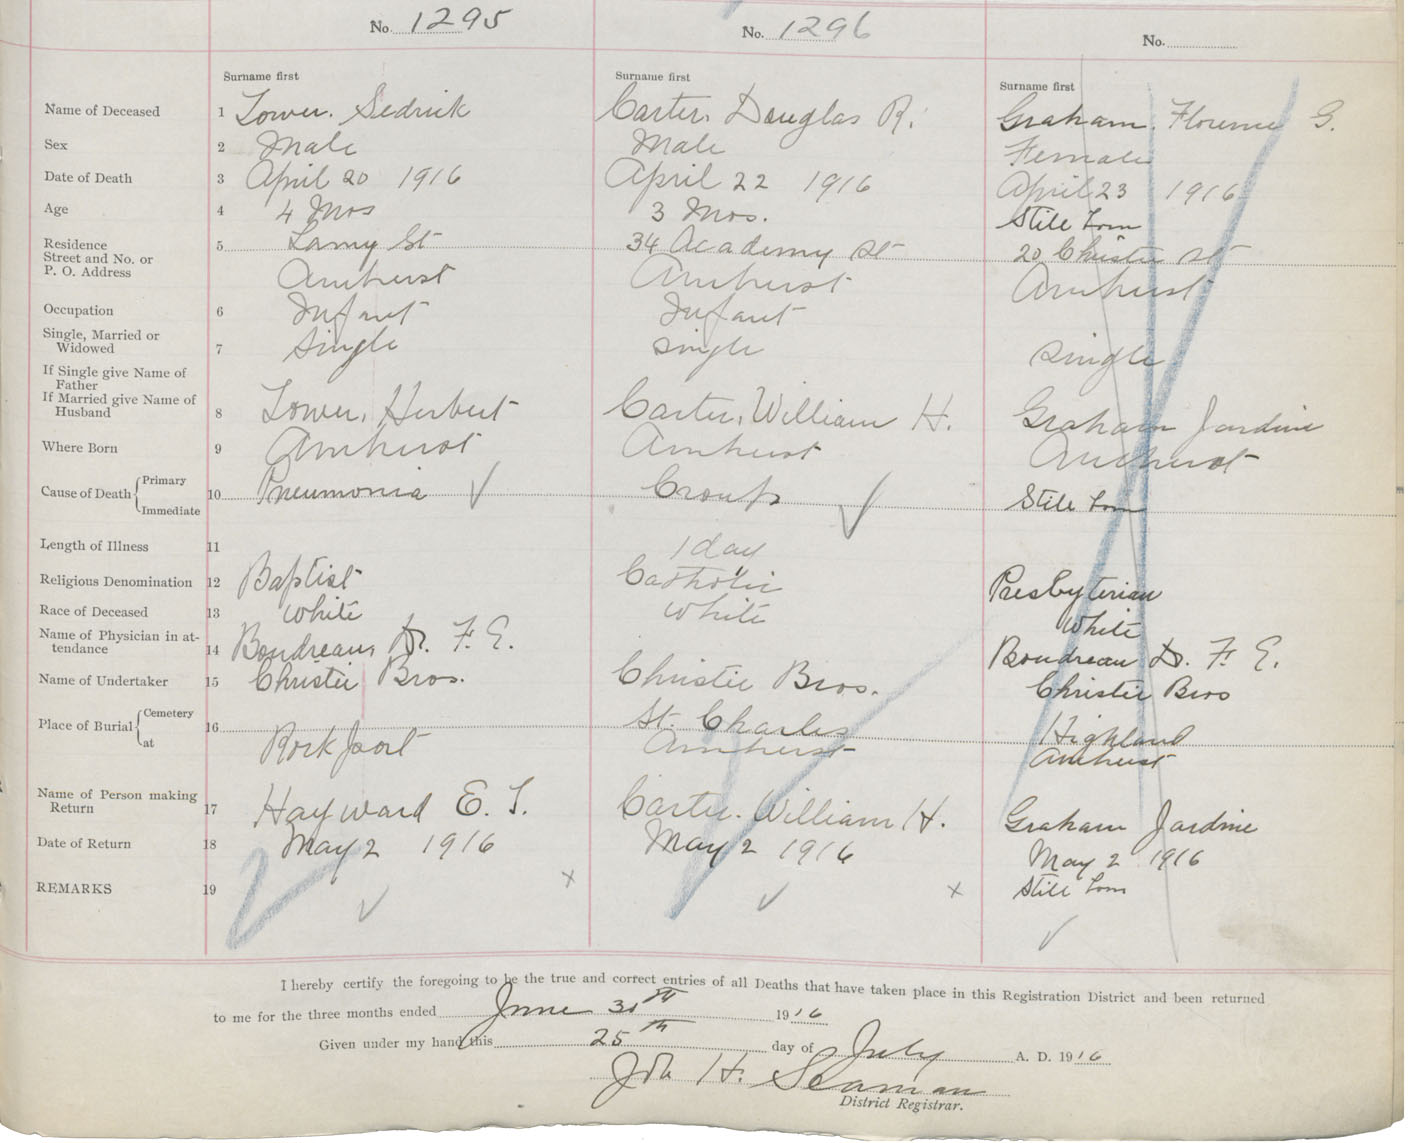 No. 1295 No. 1296 No.
Surname first Surname first Surname first
Name of Deceased 1 Tower. Sedrick Carter. Douglas R. Graham. Florence G.
Sex 2 Male Male Female
Date of Death 3 April 20 1916 April 22 1916 April 23 1916
Age 4 4 Mos 3 Mos. Still born
Residence
Street and No. or 5 Lamy St 34 Academy St 20 Christie St
P. O. Address Amherst Amherst Amherst
Occupation 6 Infant Infant
Single, Married or
Widowed 7 Single Single Single
If Single give Name of
Father
If Married give Name of
Husband 8 Tower, Herbert Carter, William H. Graham Jardine
Where Born 9 Amherst Amherst Amherst
Cause of Death Primary 10 Pneumonia Croup Still born
Immediate
Length of Illness 11 1 day
Religious Denomination 12 Baptist Catholic Presbyterian
Race of Deceased 13 White White White
Name of Physician in at-
tendance 14 Boudreau, Dr. F. E. Boudreau Dr. F. E.
Name of Undertaker 15 Christie Bros. Christie Bros. Christie Bros
Place of Burial Cemetery 16 St. Charles Highland
at Rockport Amherst Amherst
Name of Person making
Return 17 Hayward E. T. Carter. William H. Graham Jardine
Date of Return 18 May 2 1916 May 2 1916 May 2 1916
REMARKS 19 x x Still born
I hereby certify the foregoing to be the true and correct entries of all Deaths that have taken place in this Registration District and been returned
to me for the three months ended June 30th 1916
Given under my hand this 25th day of July A. D. 1916
Jon H. Seaman
District Registrar.